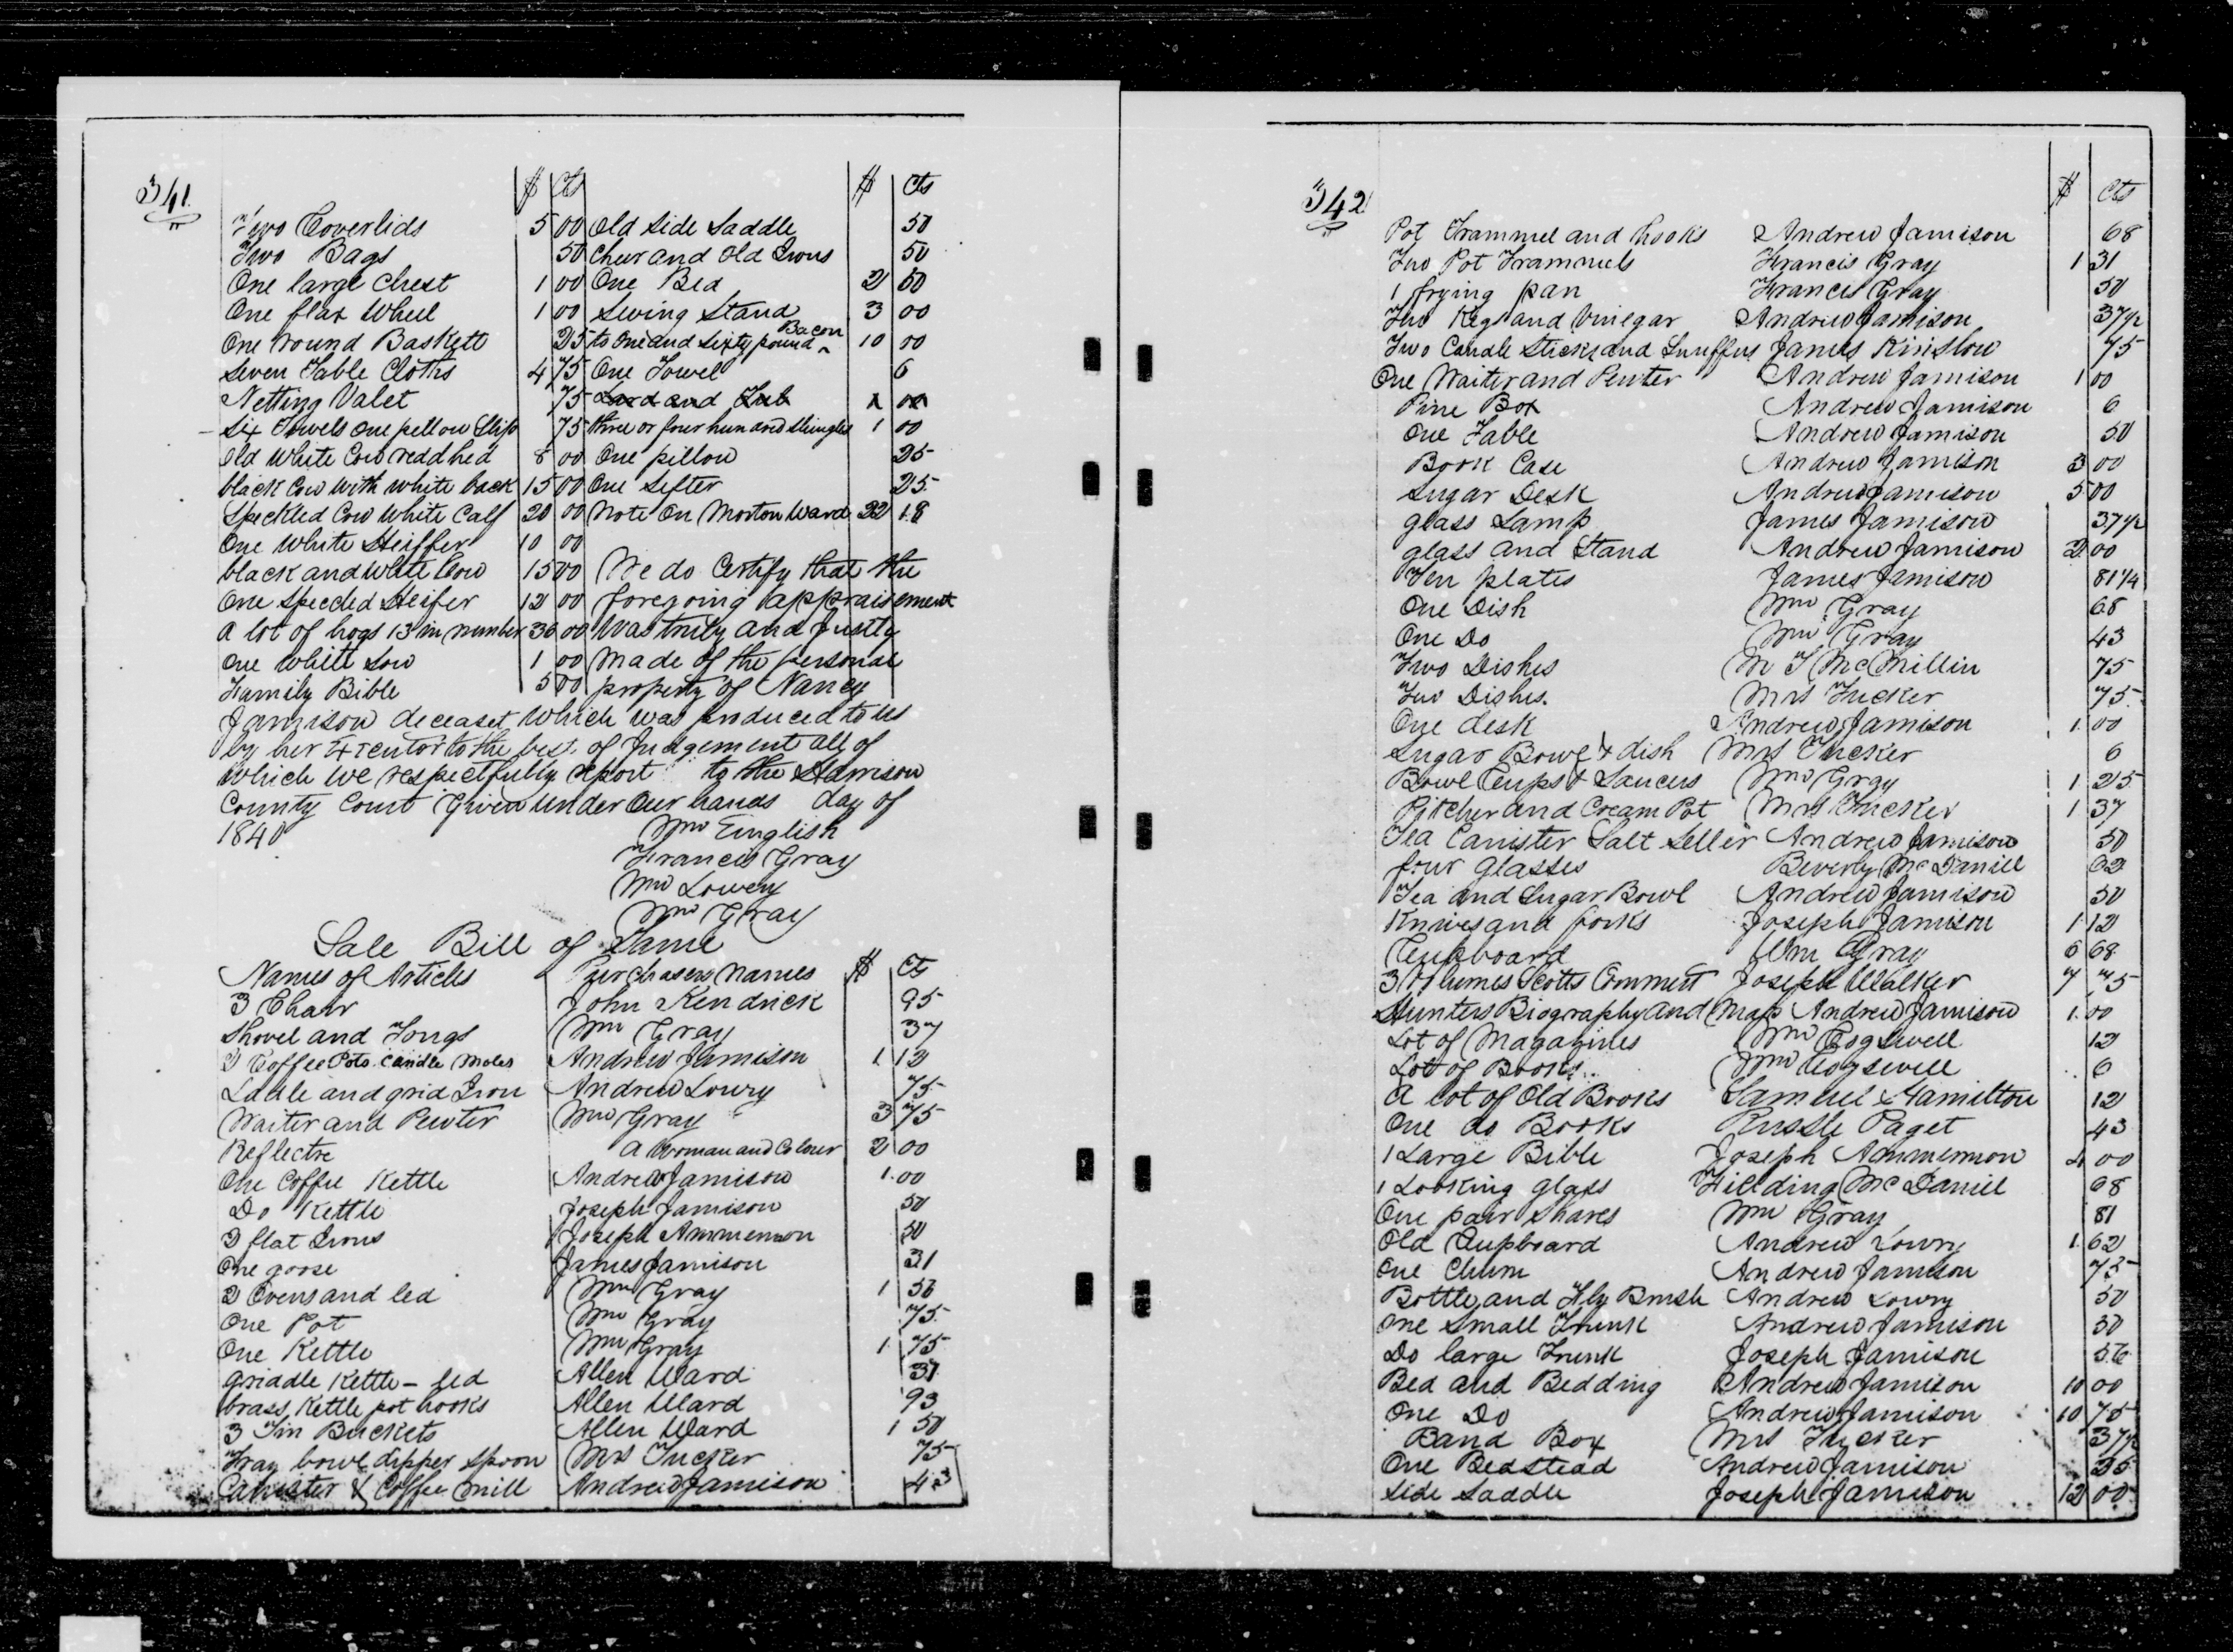 341
$ Cts $ Cts
Two Coverlids 5 00 Old Side Saddle 50
Two Bags 50 Cheer and Old Irons 50
One large Chest 1 00 One Bed 2 50
One flax Wheel 1 00 Sewing Stand 3 00
One round Baskett 25 to One and Sixty pound Bacon 10 00
Seven Table Cloths 4 75 One Towel 6
Netting Valet 75 Lard and Tub 1 00
Six Towels One pellow Slip 75 three or four hundred Shingles 1 00
Old White Cow redd hed 8 00 One pillow 25
black Cow With White back 15 00 One Sefter 25
Speckled Cow White Calf 20 00 Note On Morton Ward 22 18
One White Heiffer 10 00
black and White Cow 15 00 We do Certify that the
One Speccled Heifer 12 00 foregoing appraisement
A lot of hogs 13 in number 36 00 Was truly and Justly
One White Sow 1 00 Made of the personal
Family Bible 5 00 property of Nancy
Jamison deceast, Which was produced to us
by her Exeutor to the best of Judgement all of
Which We respectfully report to the Harrison
County Court Given under Our hands day of
1840
Wm English
Francis Gray
Wm Lowery
Wm Gray
Sale Bill of Same
Names of Articles Purchasers Names $ Cts
3 Chair John Kendrick 95
Shovel and Tongs Wm Gray 37
2 Coffee Pots Candle Moles Andrew Jamison 1 12
Ladle and grid Iron Andrew Lowry 75
Waiter and Pewter Wm Gray 3 75
Reflectre A Woman and Colour 2 00
One Coffee Kettle Andrew Jamison 1.00
Do Kettle Joseph Jamison 50
2 flat Irons Joseph Ammermon 50
One goose James Jamison 31
2 Ovens and led Wm Gray 1 56
One Pot Wm Gray 75
One Kettle Wm Gray 1 75
Griddle Kettle - led Allen Ward 31
brass Kettle pot hooks Allen Ward 93
3 Tin Buckets Allen Ward 1 50
Tray bowl dipper Spoon Mrs Tucker 75
Canister & Coffee Mill Andrew Jamison 43
342
$ Cts
Pot Trammel and hooks Andrew Jamison 68
Two Pot Trammels Francis Gray 1 31
1 frying pan Francis Gray 50
Two Kegs and Vinegar Andrew Jamison 37 1/2
Two Candle Sticks and Snuffers James Kinslow 75
One Waiter and Pewter Andrew Jamison 1 00
Pine Box Andrew Jamison 6
One Table Andrew Jamison 50
Book Case Andrew Jamison 3 00
Sugar Desk Andrew Jamison 5 00
glass Lamp James Jamison 37 1/2
glass and Stand Andrew Jamison 2 00
Ten plates James Jamison 81 1/4
One Dish Wm Gray 68
One Do Wm Gray 43
Two Dishes M T McMillin 75
Two Dishes. Mrs Tucker 75
One desk Andrew Jamison 1.00
Sugar Bowl & dish Mrs Tucker 6
Bowl Cups & Saucers Wm Gray 1 25
Pitcher and Cream Pot Mrs Tucker 1 37
Tea Canister Salt Seller Andrew Jamison 50
four glasses Beverly McDaniel 62
Tea and Sugar Bowl Andrew Jamison 50
Knives and forks Joseph Jamison 1 12
Cupboard Wm Gray 6 68
3 Volumes Scotts Comment Joseph Walker 7 75
Hunters Biography and Map Andrew Jamison 1.00
Lot of Magazines Wm Cogswell 12
Lot of Books Wm Cogswell 6
A lot of Old Books Samuel Hamilton 12
One do Books Russle Paget 43
1 Large Bible Joseph Ammermon 4 00
1 Looking glass Fielding McDaniel 68
One pair Shares Wm Gray 81
Old Cupboard Andrew Lowry 1.62
One Churn Andrew Jamison 75
Bottle, and Fly Brush Andrew Lowry 50
One Small Trunk Andrew Jamison 50
Do large Trunk Joseph Jamison 56
Bed and Bedding Andrew Jamison 10 00
One Do Andrew Jamison 10 75
Band Box Mrs Tucker 37 1/2
One Bedstead Andrew Jamison 25
Side Saddle Joseph Jamison 12 00